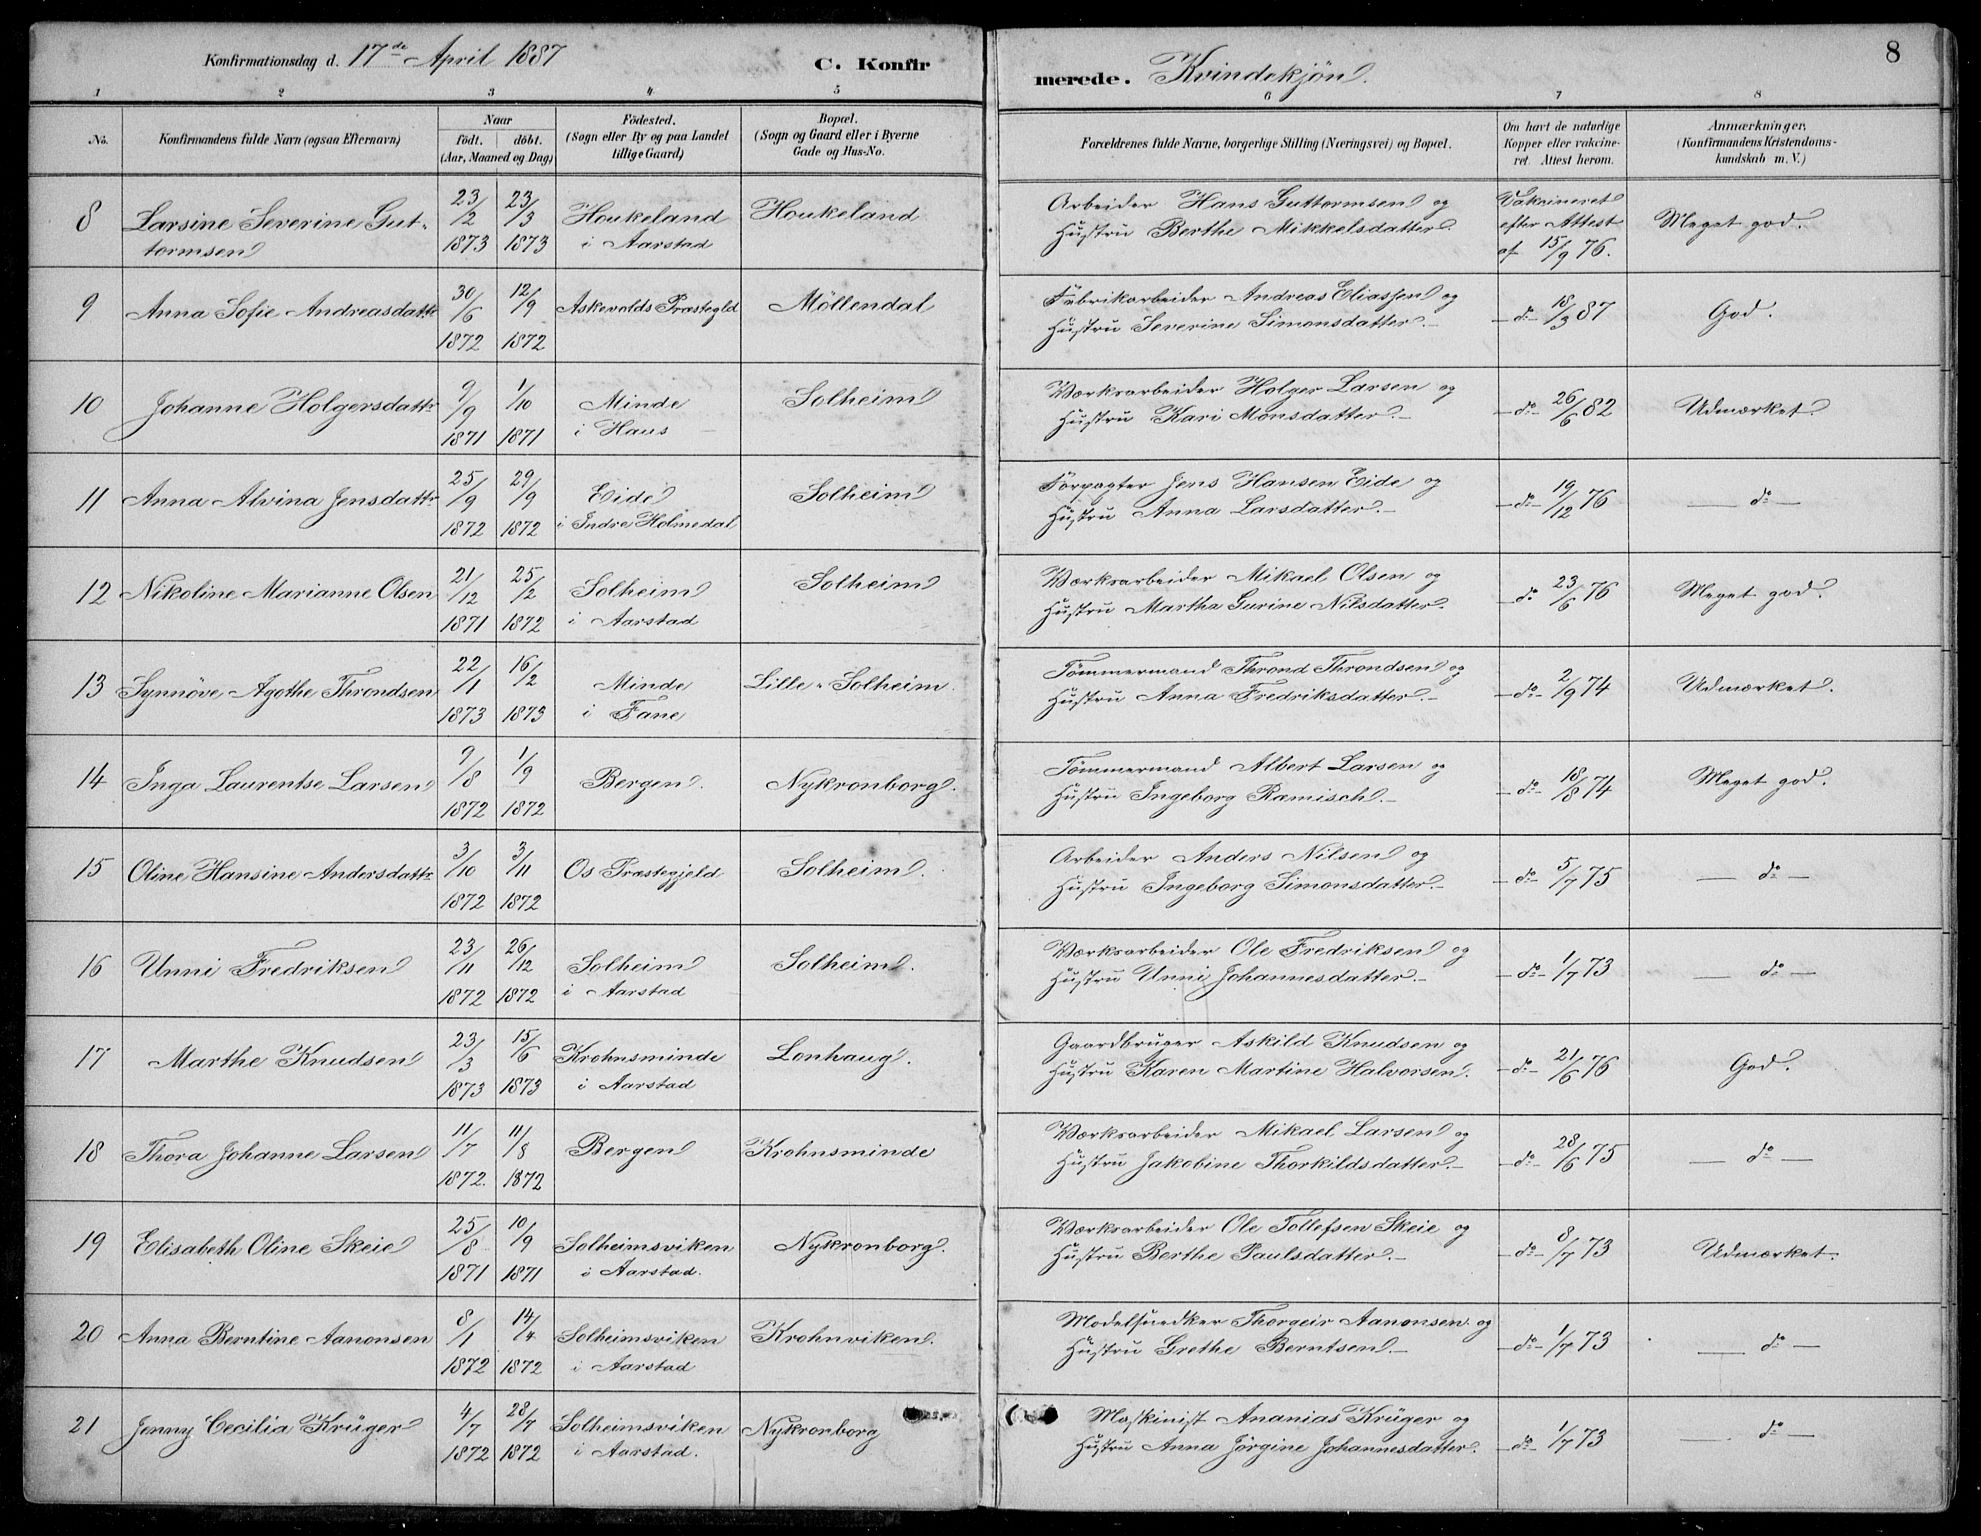 Konfirmationsdag d. 17de April 1887 C. Konfirmerede. Kvindekjön. 8
1 2 3 4 5 6 7 8
No. Konfirmandens fulde Navn (ogsaa Efternavn) Naar födt. döbt. (Aar, Maaned og Dag) Födested. (Sogn eller By og paa Landet tillige Gaard) Bopæl. (Sogn og Gaard eller i Byerne Gade og Hus-No. Forældrenes fulde Navne, borgerlige Stilling (Næringsvei) og Bopæl. Om havt de naturlige Kopper eller vakcineret. Attest herom. Anmærkninger, (Konfirmandens Kristendomskundskab m. V.)
8 Larsine Severine Guttormsen 23/2 1873 23/3 1873 Houkeland i Aarstad Houkeland Arbeider Hans Guttormsen og Hustru Berthe Mikkelsdatter Vakcineret efter Attest af 15/9 76. Meget god.
9 Anna Sofie Andreasdattr 30/6 1872 12/9 1872 Askevolds Præstegld Möllendal Fabrikarbeider Andreas Eliassen og Hustru Severine Simonsdatter.- -do- 18/3 87 God.
10 Johanne Holgersdattr 9/9 1871 1/10 1871 Minde i Haus Solheim Værksarbeider Holger Larsen og Hustru Kari Monsdatter.- -do- 26/6 82 Udmærket.
11 Anna Alvina Jensdattr 25/9 1872 29/9 1872 Eide i Indre Holmedal Solheim Forpagter Jens Hansen Eide og Hustru Anna Larsdatter.- -do- 19/12 76 - do -
12 Nikoline Marianne Olsen 21/12 1871 25/2 1872 Solheim i Aarstad Solheim Værksarbeider Mikael Olsen og Hustru Martha Gurine Nilsdatter. -do- 23/6 76 Meget god.
13 Synnöve Agothe Throndsen 22/1 1873 16/2 1873 Minde i Fane Lille-Solheim. Tömmermand Thrond Throndsen og Hustru Anna Fredriksdatter.- -do- 2/9 74 Udmærket.
14 Inga Laurentse Larsen 9/8 1872 1/9 1872 Bergen. Nykronborg. Tömmermand Albert Larsen og Hustru Ingeborg Ramisch.- -do- 18/8 74 Meget god.
15 Oline Hansine Andersdattr 3/10 1872 3/11 1872 Os Præstegjeld Solheim. Arbeider Anders Nilsen og Hustru Ingeborg Simonsdatter.- -do- 5/7 75 - do -
16 Unni Fredriksen 23/11 1872 26/12 1872 Solheim i Aarstad Solheim. Værksarbeider Ole Fredriksen og Hustru Unni Johannesdatter.- -do- 1/7 73 - do -
17 Marthe Knudsen 23/3 1873 15/6 1873 Krohnsminde i Aarstad Lonhaug. Gaardbruger Askild Knudsen og Hustru Karen Martine Halvorsen. -do- 21/6 76 God.
18 Thora Johanne Larsen 11/7 1872. 11/8 1872 Bergen Krohnsminde Værksarbeider Mikael Larsen og Hustru Jakobine Thorkildsdatter.- -do- 28/6 75 - do -
19 Elisabeth Oline Skeie 25/8 1871 10/9 1871 Solheimsviken i Aarstad. Nykronborg. Værksarbeider Ole Tollefsen Skeie og Hustru Berthe Paulsdatter.- -do- 8/7 73 Udmærket.
20 Anna Berntine Aanonsen 8/1 1872 14/4 1872 Solheimsviken i Aarstad Krohnviken. Modelsnedker Thorgeir Aanonsen og Hustru Grethe Berntsen.- -do- 1/7 73 - do -
21 Jenny Cecilia Krüger 4/7 1872 28/7 1872 Solheimsviken i Aarstad. Nykronborg Maskinist Ananias Krüger og Hustru Anna Jörgine Johannesdatter. -do- 1/7 73 - do -